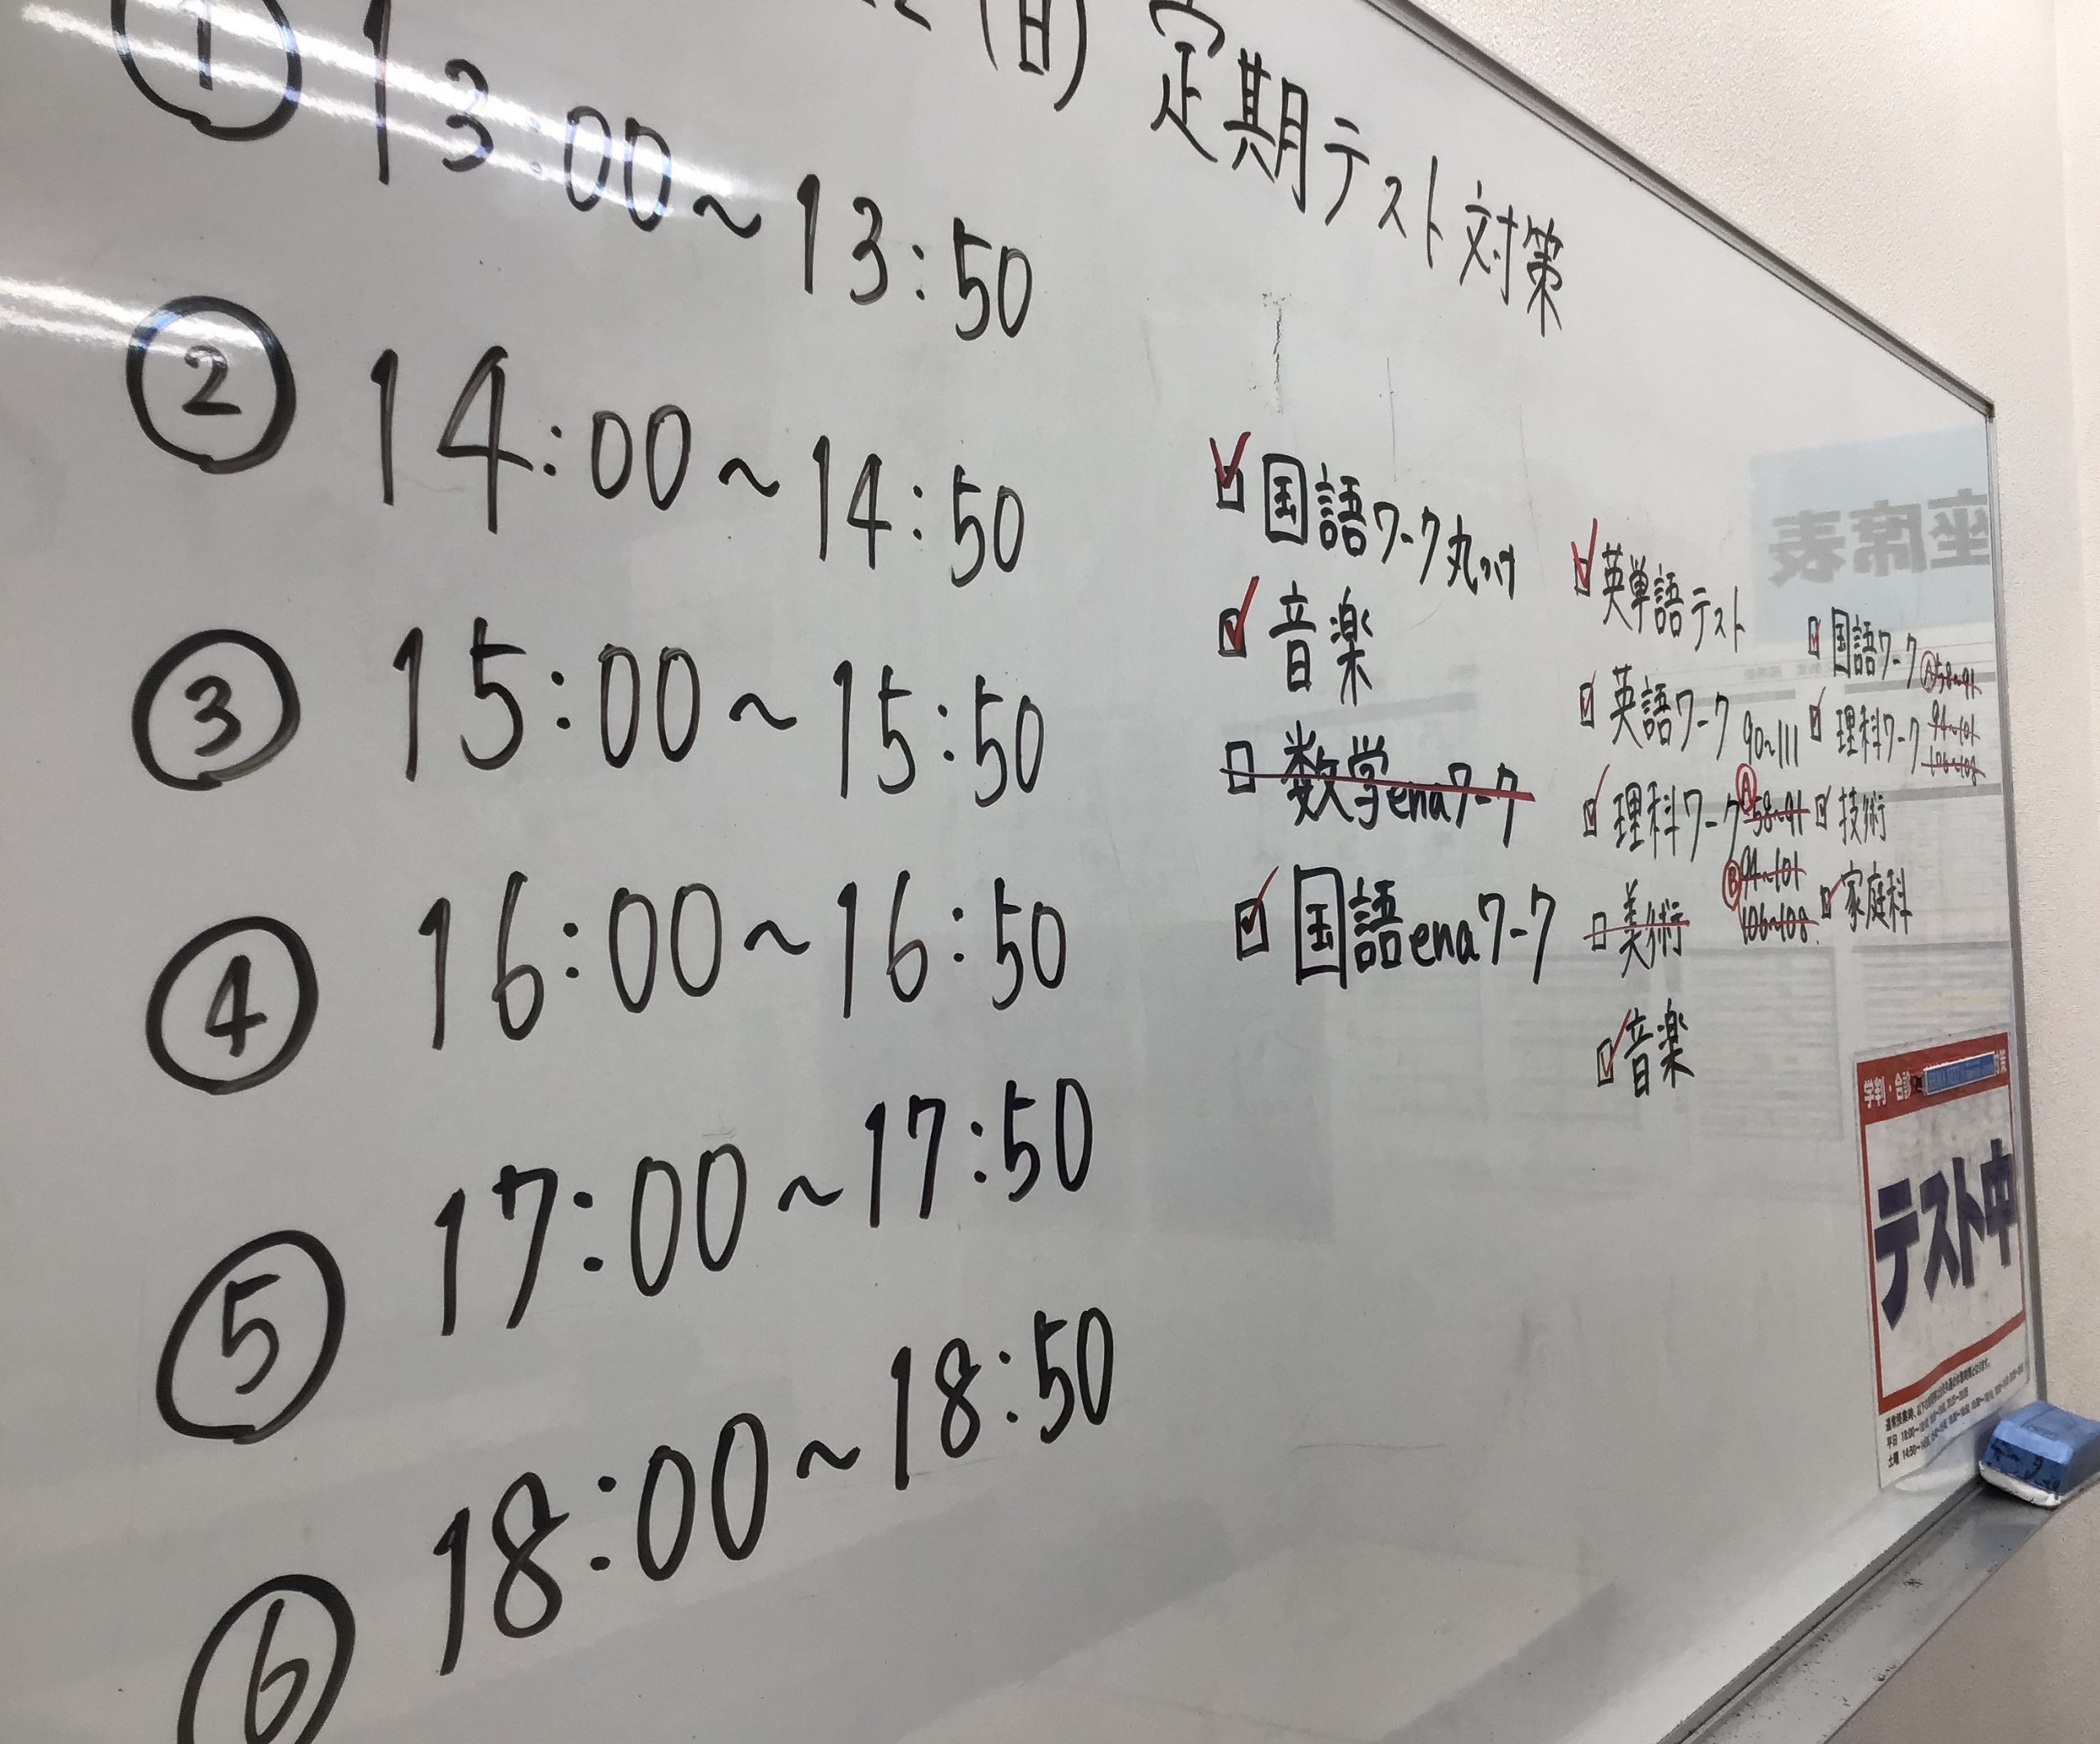 (日) 定期テスト対策
① 13:00～13:50
② 14:00～14:50
③ 15:00～15:50
④ 16:00～16:50
⑤ 17:00～17:50
⑥ 18:00～18:50
国語ワーク丸つけ
音楽
数学enaワーク
国語enaワーク
英単語テスト
英語ワーク 90~111
理科ワーク Ⓐ 58~91
Ⓑ 94~101
106~108
美術
音楽
国語ワーク Ⓐ 58~91
理科ワーク 94~101
106~108
技術
家庭科
座席表
学判・合診
テスト中